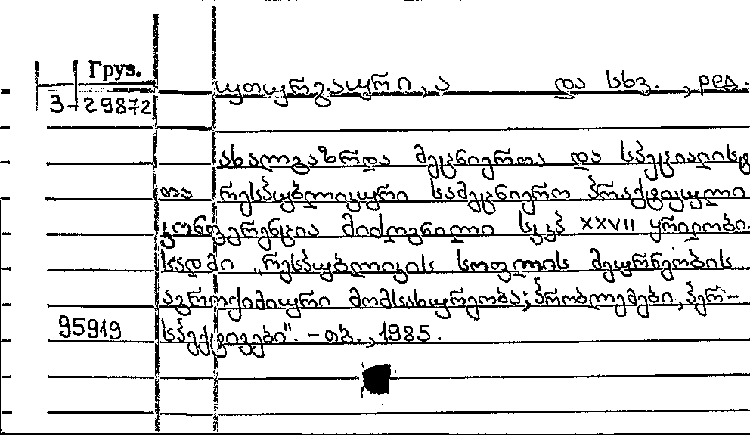 Груз.
3-29872
უთურგაური, ა და სხვ., ред.
ახალგაზრდა მეცნიერთა და სპეციალისტ
თა რესპუბლიკური სამეცნიერო პრაქტიკული
კონფერენცია მიძღვნილი სკკპ XXVII ყრილობი
სადმი „რესპუბლიკის სოფლის მეურნეობის
აგროქიმიური მომსახურეობა; პრობლემები, პერ-
95919 სპექტივები". - თბ., 1985.